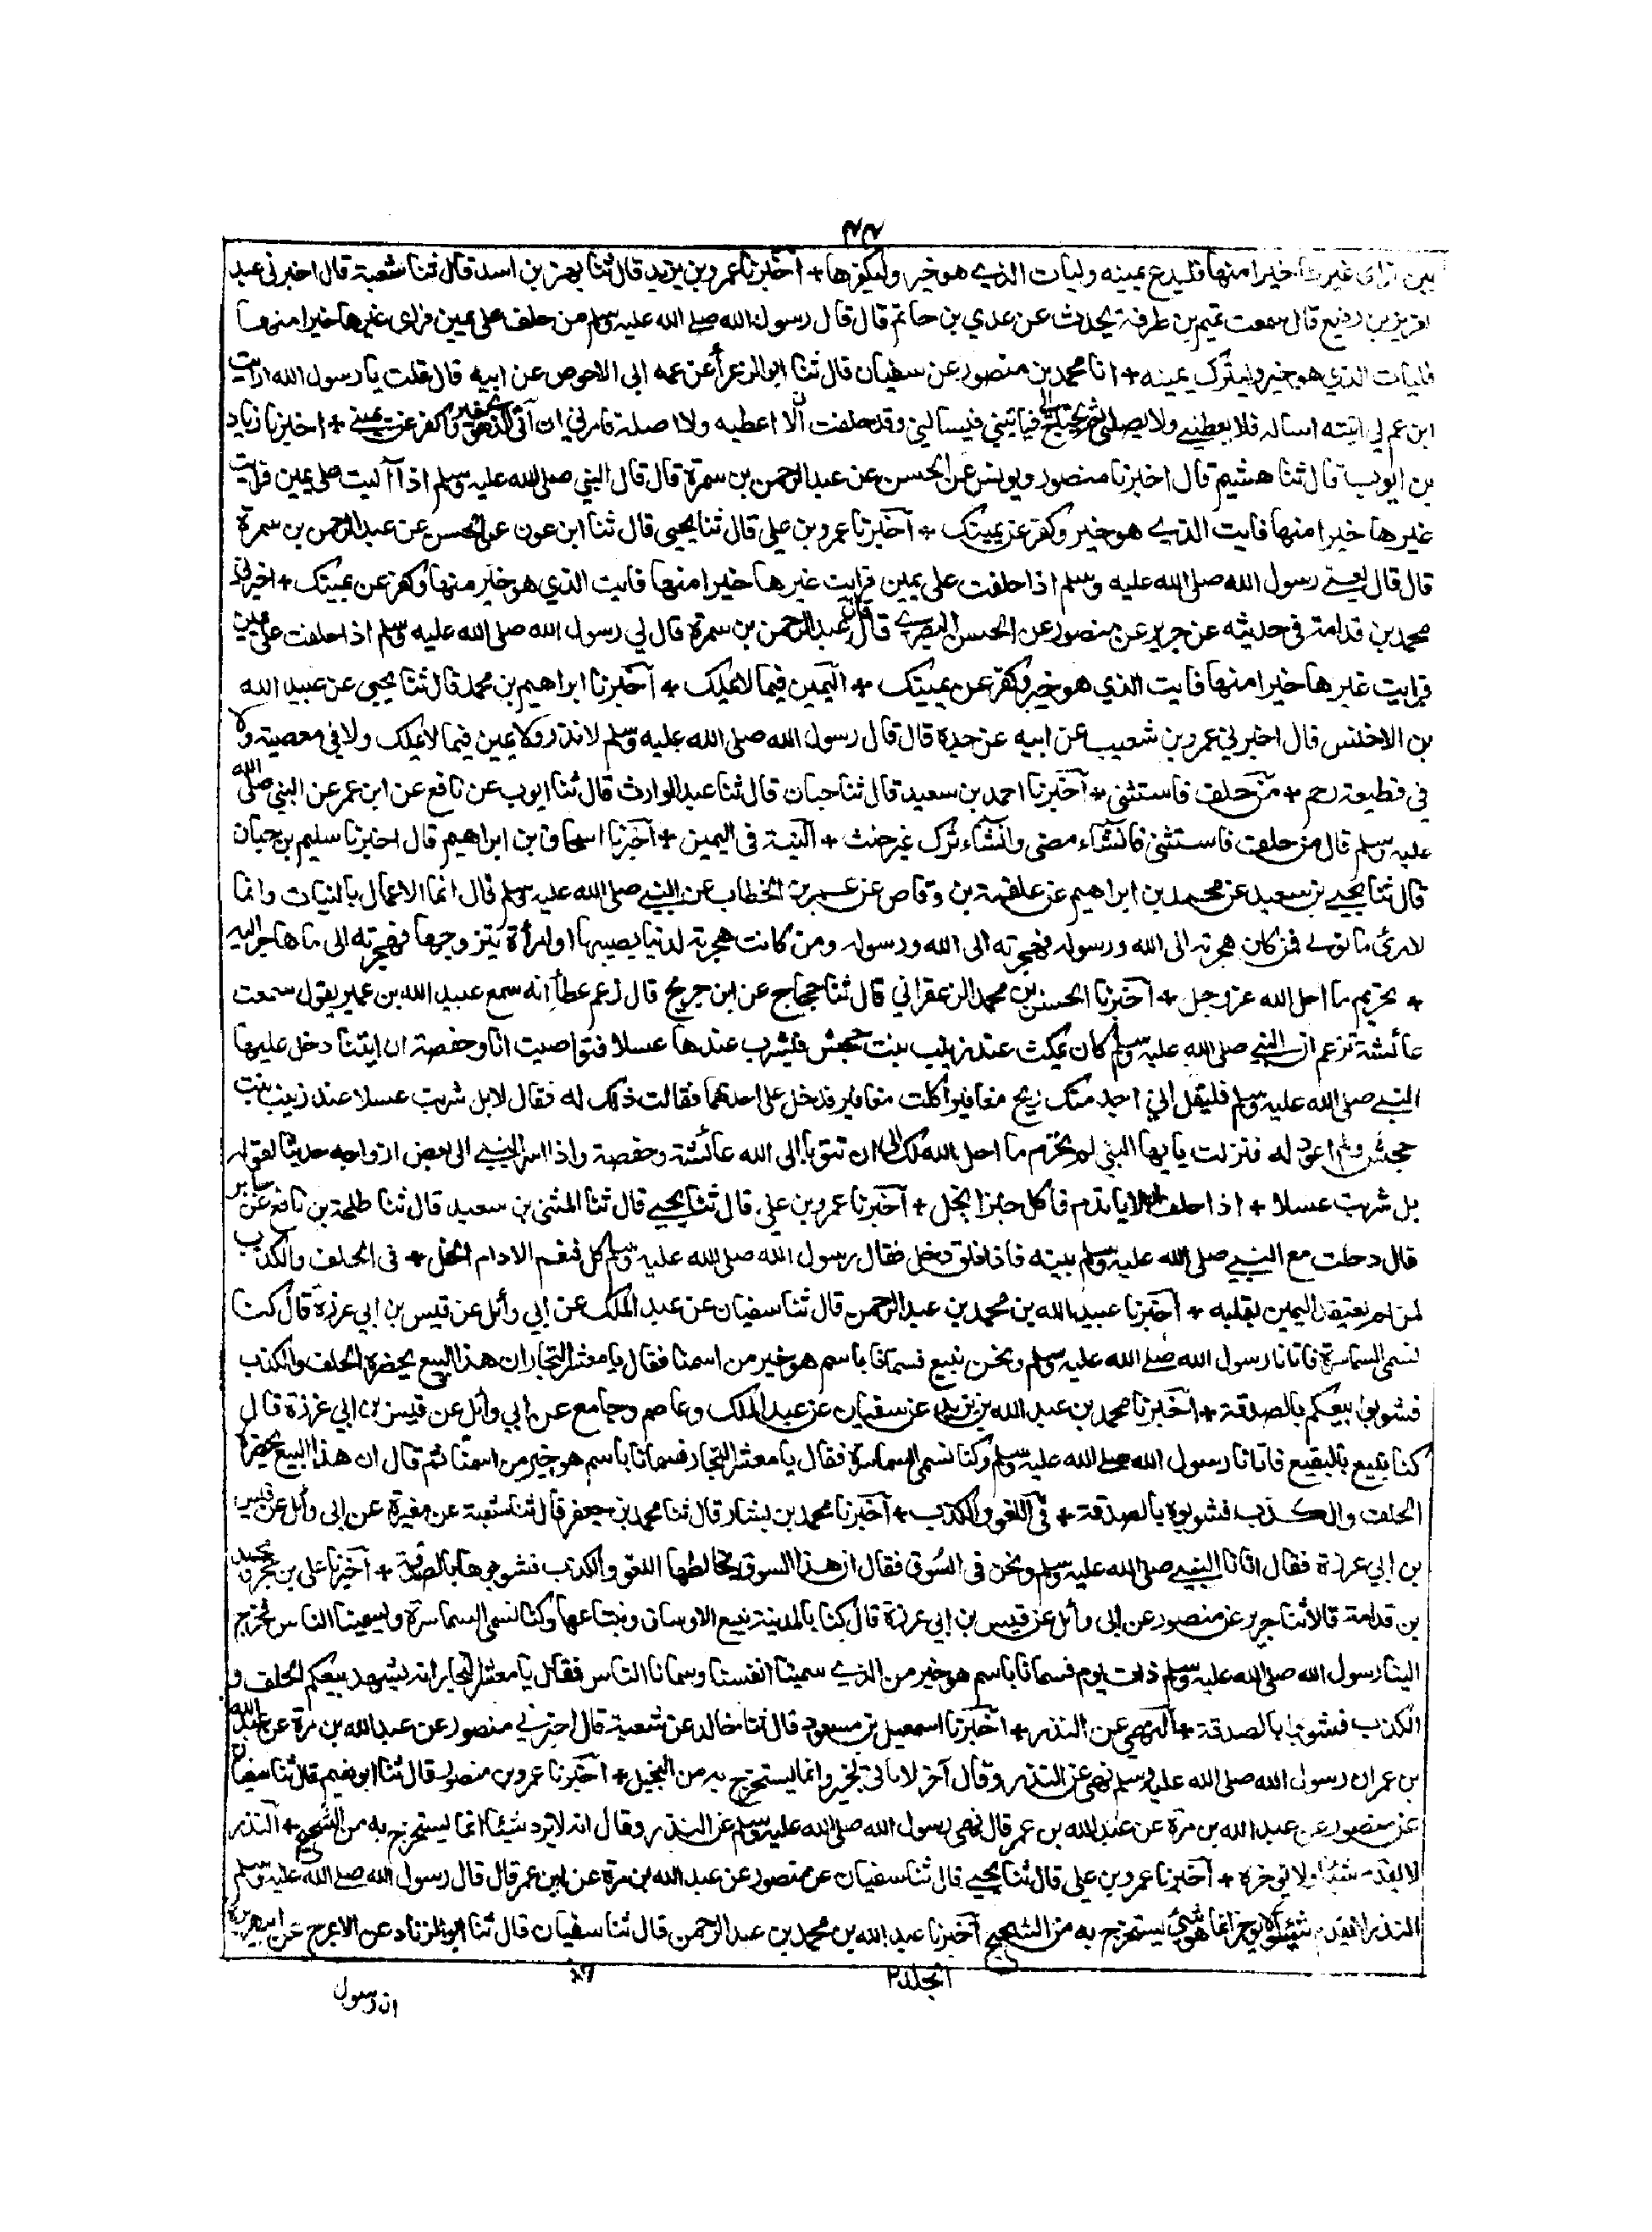 ٤٤
يمين فراى غيرها خيرا منها فليدع يمينه وليات الذي هو خير وليكفرها + اخبرنا عمرو بن يزيد قال ثنا بهز بن اسد قال ثنا شعبة قال اخبرني عبد
لعزيز بن رفيع قال سمعت تميم بن طرفة يحدث عن عدي بن حاتم قال قال رسول الله صلى الله عليه وسلم من حلف على يمين فراى غيرها خيرا منها
فليات الذي هو خير وليترك يمينه + انا محمد بن منصور عن سفيان قال ثنا ابو الزعرأ عن عمه ابي الاحوص عن ابيه قال قلت يا رسول الله ارايت
ابن عم لي اتيته اساله فلا يعطيني ولا يصلني ثم يحتاج الي فياتيني فيسالني وقد حلفت ان لا اعطيه ولا اصله فامرني ان آتي الذي هو خير واكفر عن يميني + اخبرنا زياد
بن ايوب قال ثنا هشيم قال اخبرنا منصور ويونس عن الحسن عن عبد الرحمن بن سمرة قال قال النبي صلى الله عليه وسلم اذا آليت على يمين فرايت
غيرها خيرا منها فايت الذي هو خير وكفر عن يمينك + آخبرنا عمرو بن علي قال ثنا يحيى قال ثنا ابن عون عن الحسن عن عبد الرحمن بن سمرة
قال قال يعني رسول الله صلى الله عليه وسلم اذا حلفت على يمين فرايت غيرها خيرا منها فايت الذي هو خير منها وكفر عن يمينك + اخبرنا
محمد بن قدامة في حديثه عن جرير عن منصور عن الحسن البصري قال قال عبد الرحمن بن سمرة قال لي رسول الله صلى الله عليه وسلم اذا حلفت على يمين
فرايت غيرها خيرا منها فايت الذي هو خير وكفر عن يمينك + اليمين فيما لا يملك + آخبرنا ابراهيم بن محمد قال ثنا يحيى عن عبيد الله
بن الاخنس قال اخبرني عمرو بن شعيب عن ابيه عن جده قال قال رسول الله صلى الله عليه وسلم لا نذر ولا يمين فيما لا يملك ولا في معصية ولا
في قطيعة رحم + من حلف فاستثنى + آخبرنا احمد بن سعيد قال ثنا حبان قال ثنا عبد الوارث قال ثنا ايوب عن نافع عن ابن عمر عن النبي صلى الله
عليه وسلم قال من حلف فاستثنى فان شاء مضى وان شاء ترك غير حنث + النية في اليمين + آخبرنا اسحاق بن ابراهيم قال اخبرنا سليم بن حيان
قال ثنا يحيى بن سعيد عن محمد بن ابراهيم عن علقمة بن وقاص عن عمر بن الخطاب عن النبي صلى الله عليه وسلم قال انما الاعمال بالنيات وانما
لامرئ ما نوى فمن كان هجرته الى الله ورسوله فهجرته الى الله ورسوله ومن كانت هجرته لدنيا يصيبها او امرأة يتزوجها فهجرته الى ما هاجر اليه
+ تحريم ما احل الله عز وجل + آخبرنا الحسن بن محمد الزعفراني قال ثنا حجاج عن ابن جريج قال زعم عطأ انه سمع عبيد الله بن عمير يقول سمعت
عائشة تزعم ان النبي صلى الله عليه وسلم كان يمكث عند زينب بنت جحش فيشرب عندها عسلا فتواصيت انا وحفصة ان ايتنا دخل عليها
النبي صلى الله عليه وسلم فليقل اني اجد منك ريح مغافير اكلت مغافير فدخل على احدهما فقالت ذلك له فقال لا بل شربت عسلا عند زينب بنت
جحش ولم اعود له فنزلت يايها النبي لم تحرم ما احل الله لك الى ان تتوبا الى الله عائشة وحفصة واذا اسر النبي الى بعض ازواجه حديثا لقوله
بل شربت عسلا + اذا حلف ان لا ياتدم فاكل خبزا بخل + آخبرنا عمرو بن علي قال ثنا يحيى قال ثنا المثنى بن سعيد قال ثنا طلحة بن نافع عن جابر
قال دخلت مع النبي صلى الله عليه وسلم بيته فاذا فلق وخل فقال رسول الله صلى الله عليه وسلم كل فنعم الادام الخل + في الحلف والكذب
لمن لم يعتقد اليمين بقلبه + آخبرنا عبيد الله بن محمد بن عبد الرحمن قال ثنا سفيان عن عبد الملك عن ابي وائل عن قيس بن ابي غرزة قال كنا
نسمى السماسرة فاتانا رسول الله صلى الله عليه وسلم ونحن نبيع فسمانا باسم هو خير من اسمنا فقال يا معشر التجار ان هذا البيع يحضره الحلف والكذب
فشوبوا بيعكم بالصدقة + آخبرنا محمد بن عبد الله بن يزيد عن سفيان عن عبد الملك وعاصم وجامع عن ابي وائل عن قيس بن ابي غرزة قال
كنا نبيع بالبقيع فاتانا رسول الله صلى الله عليه وسلم وكنا نسمى السماسرة فقال يا معشر التجار فسمانا باسم هو خير من اسمنا ثم قال ان هذا البيع يحضره
الحلف والكذب فشوبوه بالصدقة + في اللغو والكذب + آخبرنا محمد بن بشار قال ثنا محمد بن جعفر قال ثنا شعبة عن مغيرة عن ابي وائل عن قيس
بن ابي غرزة فقال اتانا النبي صلى الله عليه وسلم ونحن في السوق فقال ان هذا السوق يخالطها اللغو والكذب فشوبوها بالصدقة + آخبرنا علي بن حجر ومحمد
بن قدامة قالا ثنا جرير عن منصور عن ابي وائل عن قيس بن ابي غرزة قال كنا بالمدينة نبيع الاوساق ونبتاعها وكنا نسمى السماسرة ويسمينا الناس فخرج
الينا رسول الله صلى الله عليه وسلم ذات يوم فسمانا باسم هو خير من الذي سمينا انفسنا وسمانا الناس فقال يا معشر التجار انه يشهد بيعكم الحلف و
الكذب فشوبوا بالصدقة + النهي عن النذر + آخبرنا اسمعيل بن مسعود قال ثنا خالد عن شعبة قال اخبرني منصور عن عبد الله بن مرة عن عبد الله
بن عمر ان رسول الله صلى الله عليه وسلم نهى عن النذر وقال آخر لا ياتي بخير وانما يستخرج به من البخيل + آخبرنا عمرو بن منصور قال ثنا ابو نعيم قال ثنا سفيان
عن منصور عن عبد الله بن مرة عن عبد الله بن عمر قال نهى رسول الله صلى الله عليه وسلم عن النذر وقال انه لا يرد شيئا انما يستخرج به من الشحيح + النذر
لا يقدم شيئا ولا يوخره + آخبرنا عمرو بن علي قال ثنا يحيى قال ثنا سفيان عن منصور عن عبد الله بن مرة عن ابن عمر قال قال رسول الله صلى الله عليه وسلم
النذر لا يقدم شيئا ولا يوخر انما هو شئ يستخرج به من الشحيح آخبرنا عبد الله بن محمد بن عبد الرحمن قال ثنا سفيان قال ثنا ابو الزناد عن الاعرج عن ابي هريرة
الجلد ٢
ان رسول